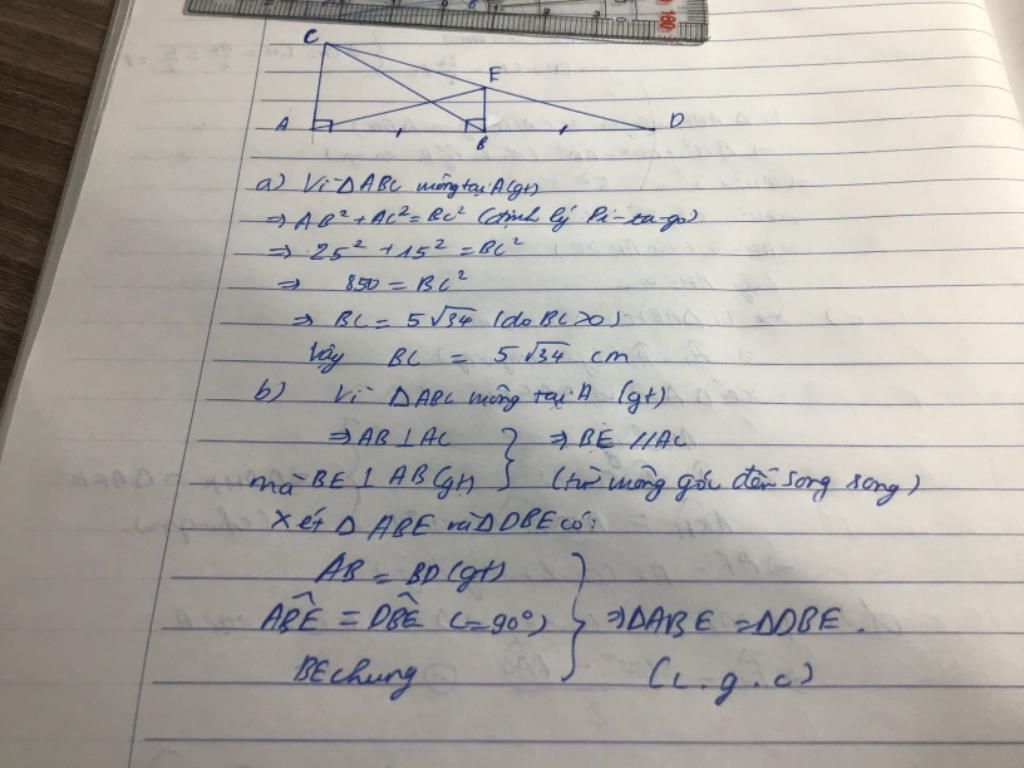 C
E
A
B
D
a) Vì ΔABC vuông tại A (gt)
⇒ AB² + AC² = BC² (định lý Pi-ta-go)
⇒ 25² + 15² = BC²
⇒ 850 = BC²
⇒ BC = 5√34 (do BC > 0)
Vậy BC = 5√34 cm
b) Vì ΔABC vuông tại A (gt)
⇒ AB ⊥ AC } ⇒ BE // AC
mà BE ⊥ AB (gt) (từ vuông góc đến song song)
Xét Δ ABE và Δ DBE có:
AB = BD (gt)
ABÊ = DBÊ (=90°) } ⇒ ΔABE = ΔDBE.
BE chung (c.g.c)